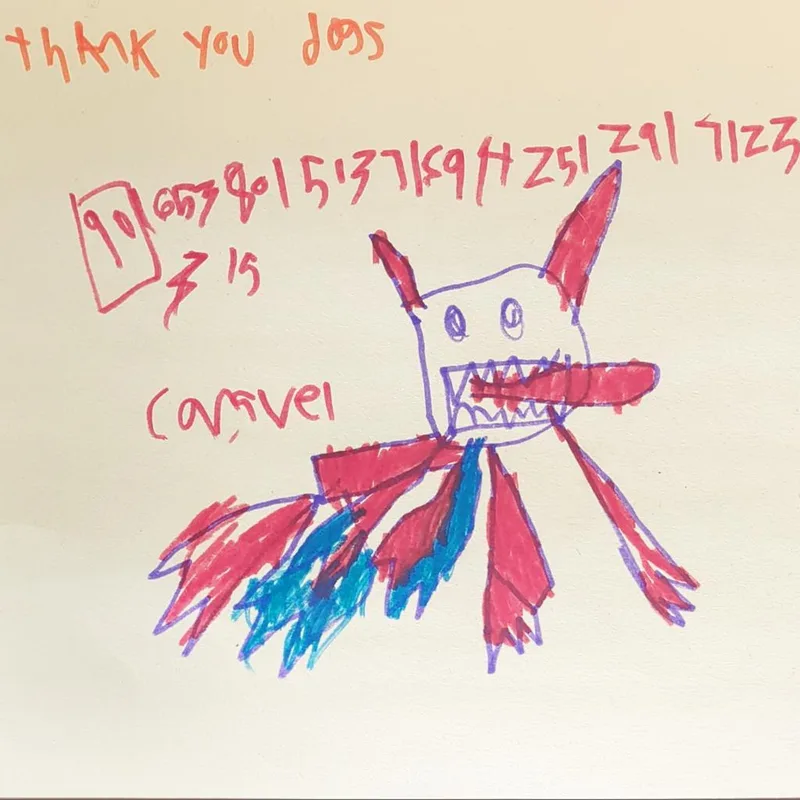 thank you dogs
90 653 801 5137 159 14 251 291 7123
7 15
Carnvel